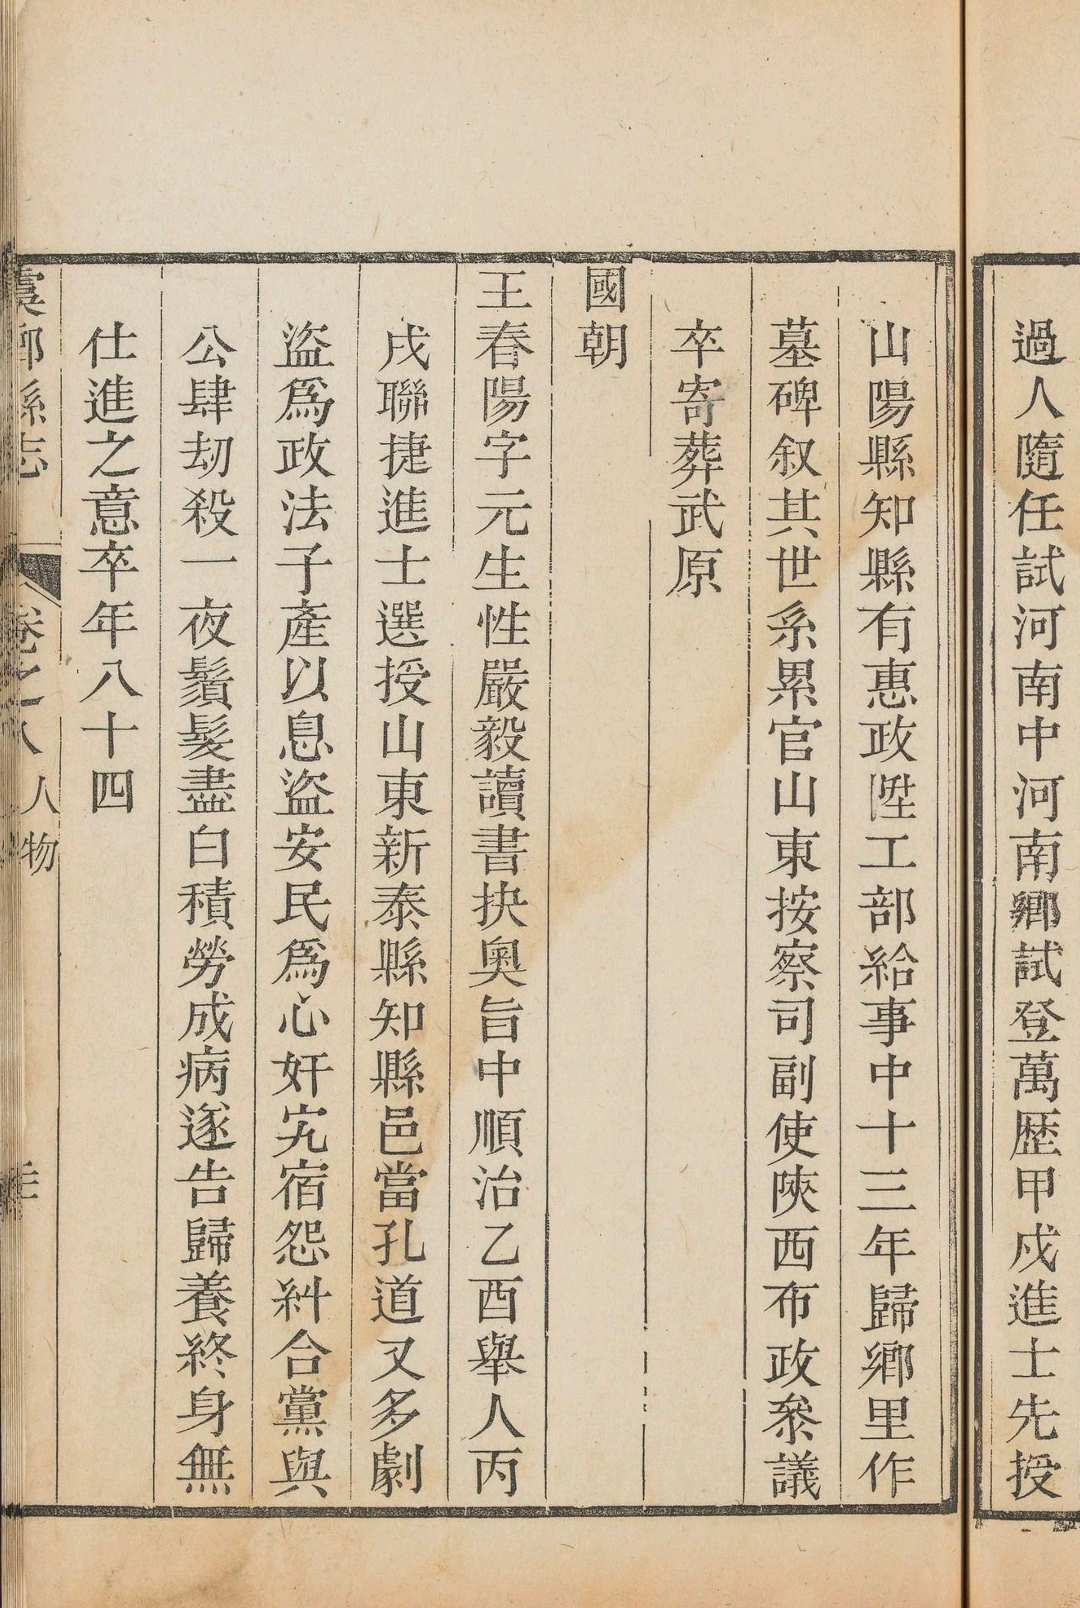 過人隨任試河南中河南鄉試登萬歷甲戍進士先授
山陽縣知縣有惠政陞工部給事中十三年歸鄉里作
墓碑叙其世系累官山東按察司副使陝西布政叅議
卒寄葬武原
國朝
王春陽字元生性嚴毅讀書抉奥旨中順治乙酉舉人丙
戌聯捷進士選授山東新泰縣知縣邑當孔道又多劇
盜爲政法子產以息盜安民爲心奸宄宿怨糾合黨與
公肆刼殺一夜鬚髮盡白積勞成病遂告歸養終身無
仕進之意卒年八十四
虞鄉縣志 卷之八 人物